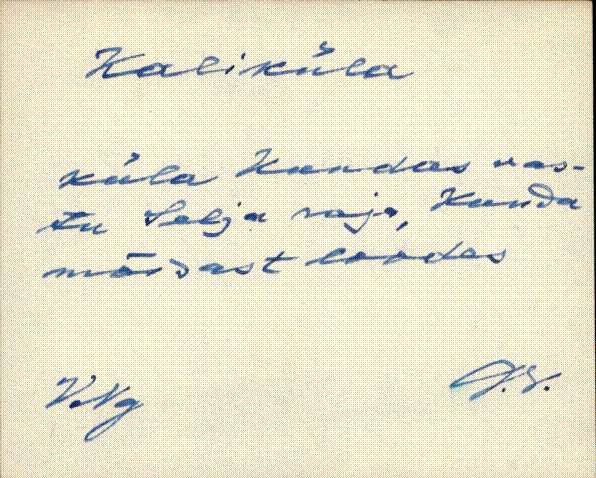 Kaliküla
küla Kundas vas-
tu Selja raja, Kunda
mõisast loodes
V.Ng